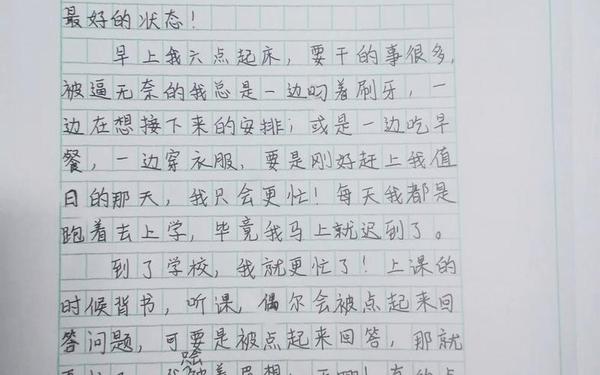 最好的状态!
早上我六点起床,要干的事很多,
被逼无奈的我总是一边叼着刷牙,一
边在想接下来的安排;或是一边吃早
餐,一边穿衣服,要是刚好赶上我值
日的那天,我只会更忙!每天我都是
跑着去上学,毕竟我马上就迟到了。
到了学校,我就更忙了!上课的
时候背书,听课,偶尔会被点起来回
答问题,可要是被点起来回答,那就